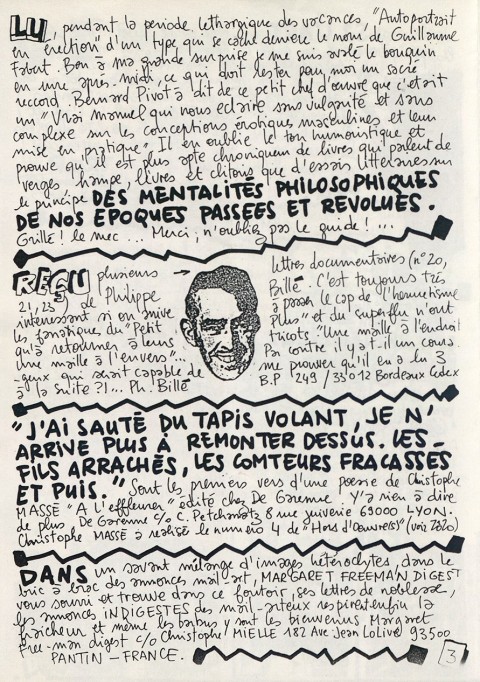 LU, pendant la periode lethargique des vacances, "Autoportrait
en érection" d'un type qui se cache derrière le nom de Guillaume
Fabert. Bon à ma grande surprise je me suis avalé le bouquin
en une après-midi, ce qui doit rester pour moi un sacré
record. Bernard Pivot a dit de ce petit chef d'œuvre que c'était
un "Vrai manuel qui nous eclaire sans vulgarité et sans
complexe sur les conceptions érotiques masculines et leur
mise en pratique". Il en oublie le ton humoristique et
prouve qu'il est plus apte chroniqueur de livres qui parlent de
verges, hampe, livres et clitoris que d'essais litteraires sur
le principe DES MENTALITÉS PHILOSOPHIQUES
DE NOS EPOQUES PASSEES ET REVOLUES.
Grillé! le mec... Merci, n'oubliez pas le guide!...
REÇU plusieurs → lettres documentaires (n°20,
21, 23 de Philippe Billé. C'est toujours très
interessant si on arrive à passer le cap de l'hermetisme
les fanatiques du "Petit Plus" et du superflu n'ont
qu'à retourner à leurs tricots "Une maille à l'endroit
Une maille à l'envers"... Par contre il y a t-il un cours
-geux qui serait capable de me prouver qu'il en a lu 3
à la suite?!... Ph. Billé B.P 249 / 33012 Bordeaux Cedex
"J'AI SAUTÉ DU TAPIS VOLANT, JE N'
ARRIVE PLUS À REMONTER DESSUS. LES
FILS ARRACHÉS, LES COMTEURS FRACASSÉS
ET PUIS." Sont les premiers vers d'une poesie de Christophe
MASSÉ "A l'effleurer" édité chez De Garenne. Y'a rien à dire
de plus, De Garenne c/o C. Petchanatz 8 rue juiverie 69000 LYON.
Christophe MASSÉ a realisé le numéro 4 de "Hors d'Oeuvre(s)" (voir 2020)
DANS un savant mélange d'images hétéroclytes, dans le
bric à brac des annonces mail art, MARGARET FREEMAN DIGEST
vous sourri et trouve dans ce foutoir, ses lettres de noblesse,
les annonces INDIGESTES des mail-arteux respirent enfin la
fraîcheur et même les barbus y sont les bienvenus, Margaret
Free-man digest c/o Christophe MIELLE 182 Ave Jean Lolive 93500
PANTIN - FRANCE.
3